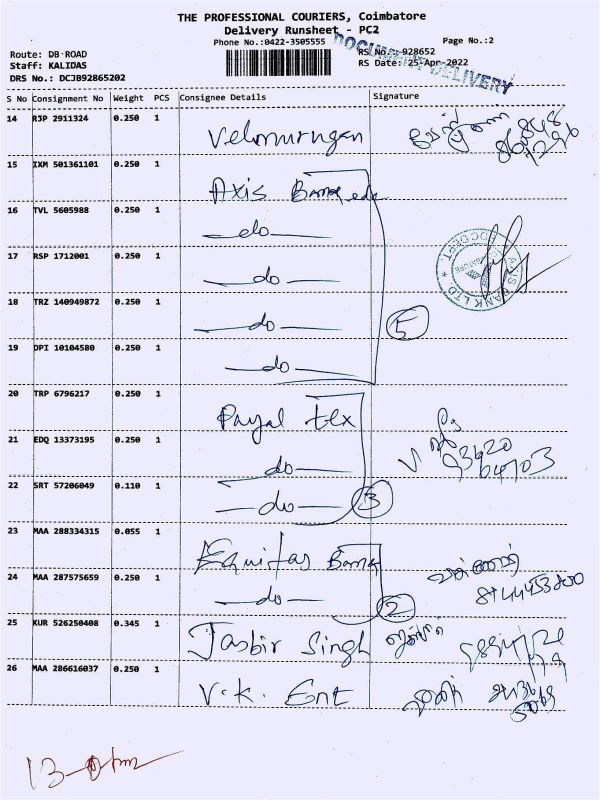 THE PROFESSIONAL COURIERS, Coimbatore
Delivery Runsheet - PC2
Phone No.:0422-3505555
Page No.:2
DOCUMENT DELIVERY
Route: DB-ROAD
RS No.: 928652
Staff: KALIDAS
RS Date: 25-Apr-2022
DRS No.: DCJB92865202
S No Consignment No Weight PCS Consignee Details Signature
14 RJP 2911324 0.250 1 Velmurugan
15 IXM 501361101 0.250 1 Axis Bank
16 TVL 5605988 0.250 1 -do-
17 RSP 1712001 0.250 1 -do-
AXIS BANK LTD
18 TRZ 140949872 0.250 1 -do- 5
19 DPI 10104580 0.250 1 -do-
20 TRP 6796217 0.250 1 Payal tex
21 EDQ 13373195 0.250 1 -do- 93620
04703
22 SRT 57206049 0.110 1 -do- 3
23 MAA 288334315 0.055 1 Equitas Bank
24 MAA 287575659 0.250 1 -do- 2
25 KUR 526250408 0.345 1 Jasbir Singh
26 MAA 286616037 0.250 1 V.K. Ent